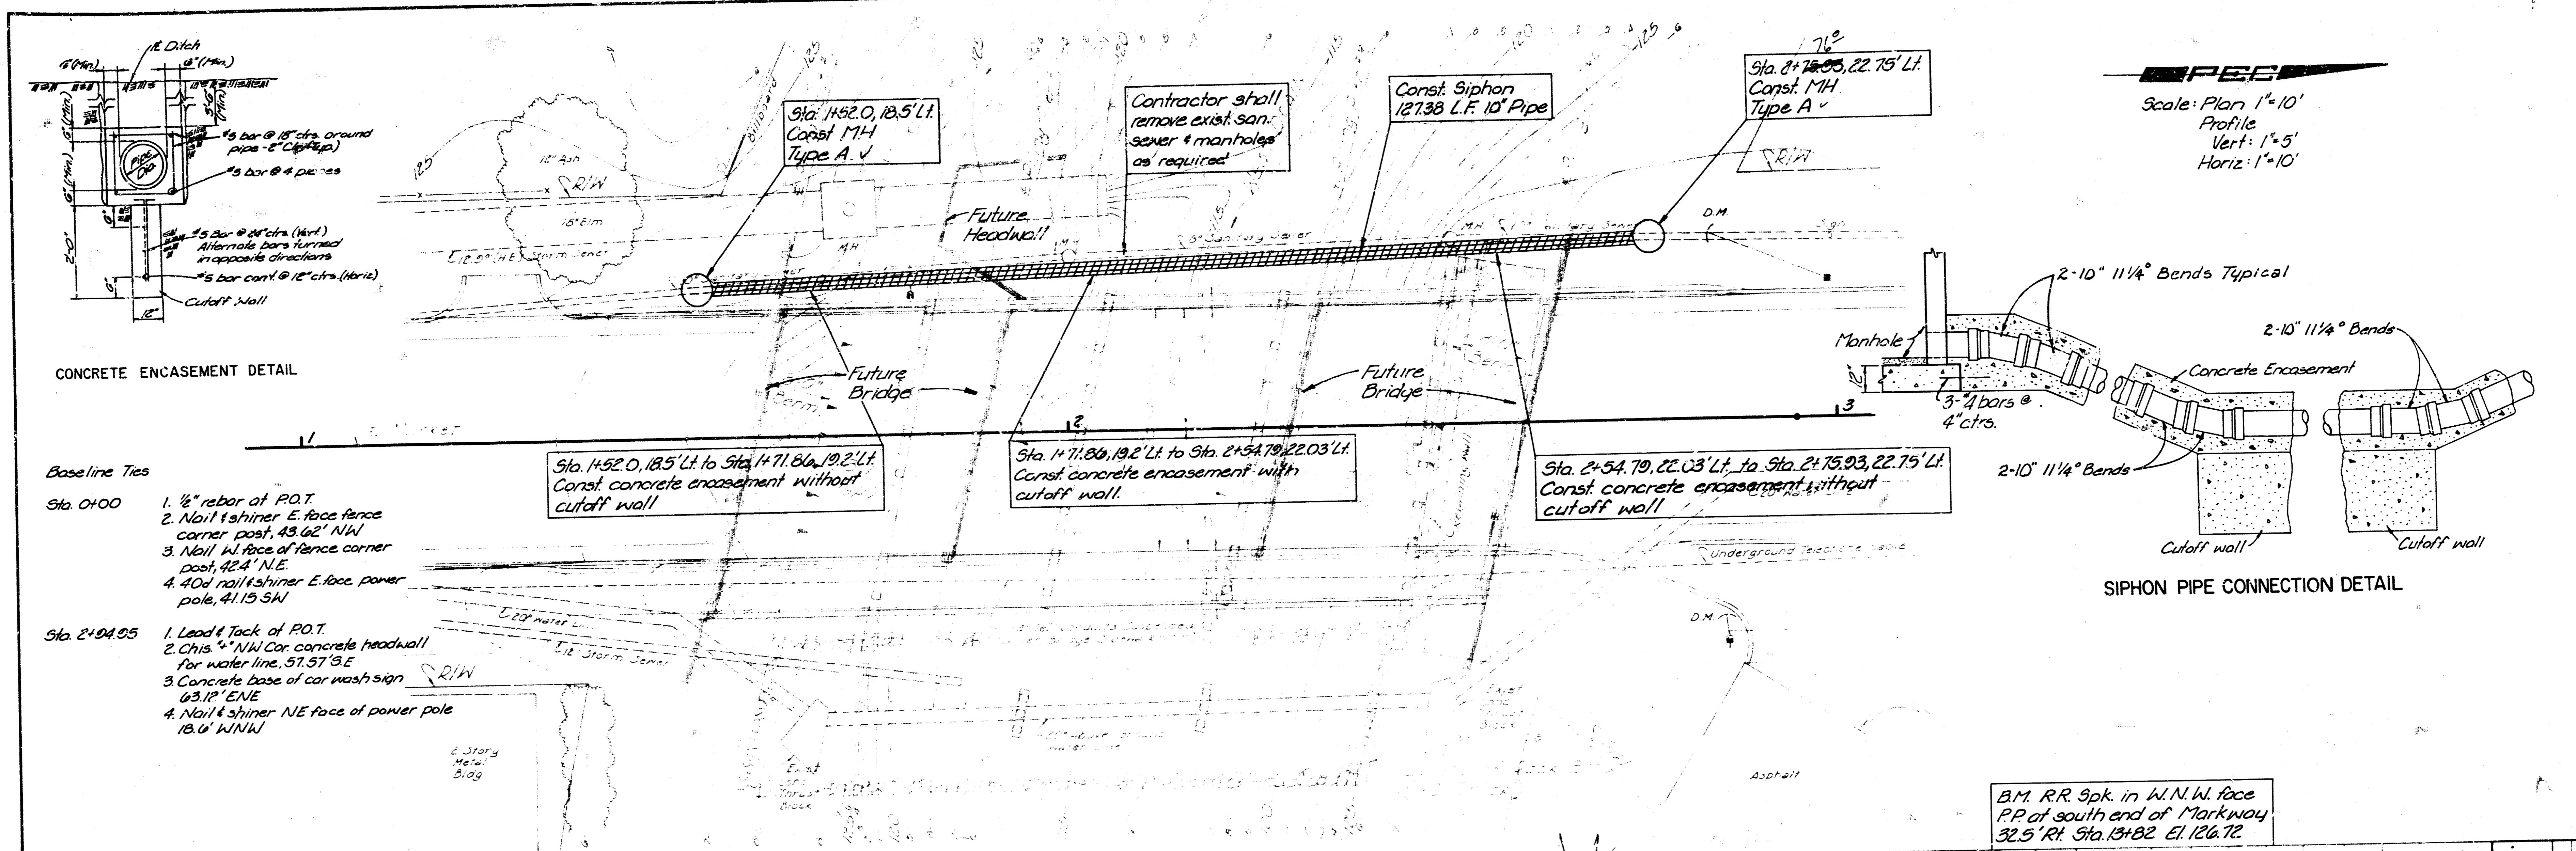 ℄ Ditch
6"(Min.)
6"(Min.)
6"(Min.)
6"(Min.)
#5 bar @ 18" ctrs. around
pipe - 2" Clr. (Typ.)
PIPE
DIA.
#5 bar @ 4 places
6"
#5 Bar @ 24" ctrs. (Vert.)
Alternate bars turned
in opposite directions
2'-0"
#5 bar cont. @ 12" ctrs. (Horiz)
6"
Cutoff Wall
12"
CONCRETE ENCASEMENT DETAIL
Baseline Ties
Sta. 0+00
1. ½" rebar at P.O.T.
2. Nail & shiner E. face fence
corner post, 43.62' NW
3. Nail W. face of fence corner
post, 42.4' N.E.
4. 40d nail & shiner E. face power
pole, 41.15 SW
Sta. 2+94.95
1. Lead & Tack at P.O.T.
2. Chis. "+" NW Cor. concrete headwall
for water line, 57.57' S.E
3. Concrete base of car wash sign
63.12' ENE
4. Nail & shiner NE face of power pole
18.6' WNW
125
125
125
Billboard
12" Ash
R/W
18" Elm
MH
Sta. 1+52.0, 18.5' Lt.
Const MH
Type A. ✓
Future
Headwall
Contractor shall
remove exist. san.
sewer & manholes
as required
Const. Siphon
127.38 L.F. 10" Pipe
76.0
Sta. 2+75.93, 22.75' Lt.
Const. MH
Type A ✓
R/W
8" Sanitary Sewer
MH
D.M.
Sign
Storm Sewer
Future
Bridge
Berm
Future
Bridge
1
2
3
Sta. 1+52.0, 18.5' Lt. to Sta. 1+71.86, 19.2' Lt.
Const. concrete encasement without
cutoff wall
Sta. 1+71.86, 19.2' Lt. to Sta. 2+54.79, 22.03' Lt.
Const. concrete encasement with
cutoff wall.
Sta. 2+54.79, 22.03' Lt. to Sta. 2+75.93, 22.75' Lt.
Const. concrete encasement without
cutoff wall
Underground Telephone Cable
20" Water Line
12" Storm Sewer
R/W
D.M.
2 Story
Metal
Bldg
Exist
Thrust
Block
Asphalt
PEC
Scale: Plan 1"=10'
Profile
Vert: 1"=5'
Horiz: 1"=10'
2-10" 11¼° Bends Typical
Manhole
12"
3-#4 bars @
4" ctrs.
2-10" 11¼° Bends
Concrete Encasement
2-10" 11¼° Bends
Cutoff wall
Cutoff wall
SIPHON PIPE CONNECTION DETAIL
B.M. R.R. Spk. in W.N.W. face
P.P. at south end of Markway
32.5' Rt. Sta. 13+82 El. 126.72